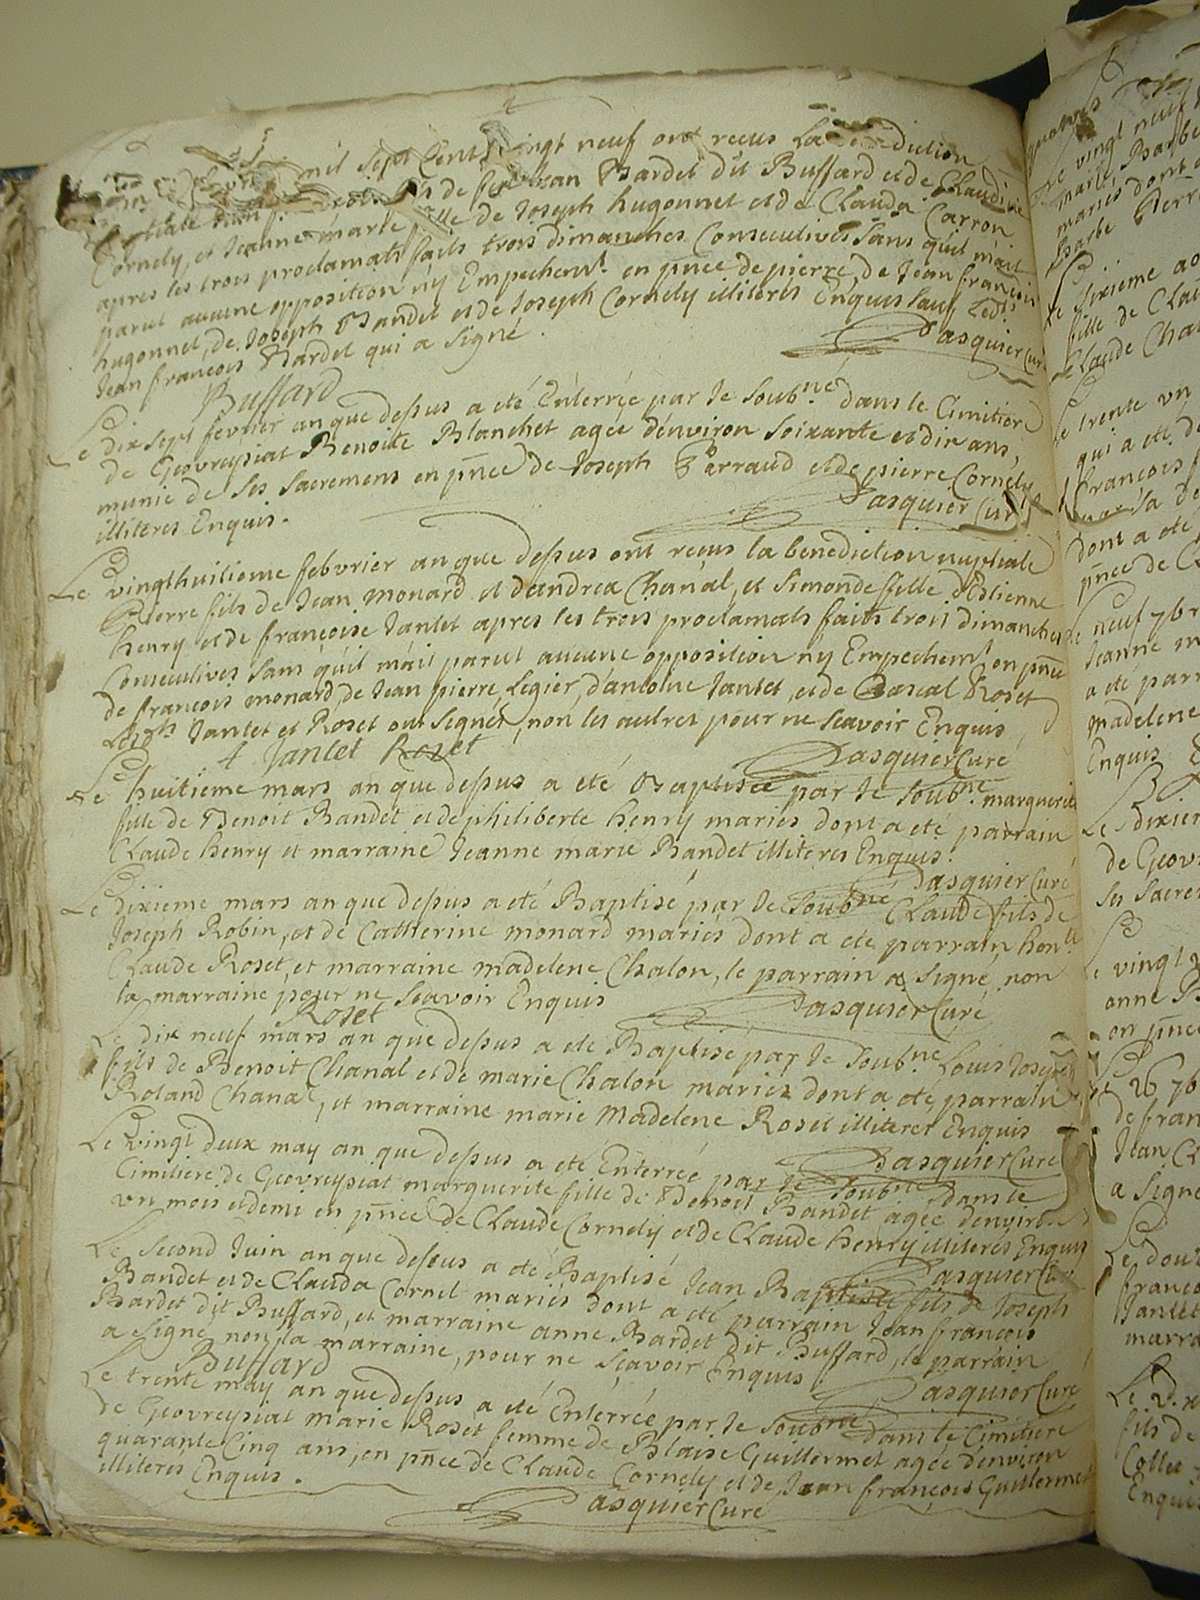 mil sept Cent vingt neuf ont recus La benediction
de feu Jean Bardet dit Buffard et de Claudine
Cornely, et Jeanne marie fille de Joseph hugonnet et de Clauda Carron
apres les trois proclamats faits trois dimanches Consecutives sans qu'il m'ait
parut aucune opposition ny Empechemt. en pnce de pierre, de Jean françois
hugonnet, de Joseph Bandet et de Joseph Cornely illiteres Enquis sauf Ledt
Jean françois Bardet qui a signé.
Buffard Pasquier Curé
Le dix sept fevrier an que dessus a eté Enterrée par je soubne dans le Cimitiere
de Geovreysiat Benoite Blanchet agée d'environ soixante et dix ans,
munie de ses sacremens en pnce de Joseph Farraud et de pierre Cornely
illiteres Enquis. Pasquier Curé
Le vingthuitieme febvrier an que dessus ont recus la benediction nuptiale
Pierre fils de Jean monard et d'andrea Chanal, et Simonde fille d'Estienne
henry et de françoise Jantet apres les trois proclamats faits trois dimanches
Consecutives sans qu'il m'ait parut aucune opposition ny Empechemt. en pnce
de françois monard, de Jean pierre Legier, d'antoine Jantet, et de Pascal Roset
Lesds Jantet et Roset ont signés, non les autres pour ne scavoir Enquis
A Jantet Roset Pasquier Curé
Le huitieme mars an que dessus a eté Baptisée par je soubne marguerite
fille de Benoit Bandet et de philiberte henry mariés dont a eté parrain
Claude henry et marraine Jeanne marie Bandet illiteres Enquis.
Pasquier Curé
Le dixieme mars an que dessus a eté Baptisé par je soubné Claude fils de
Joseph Robin, et de Catherine monard mariés dont a eté parrain hontt
Claude Roset, et marraine madelene Chalon, le parrain a signé non
la marraine pour ne scavoir Enquis
Roset Pasquier Curé
Le dix neuf mars an que dessus a eté Baptisé par je soubne Louis Joseph
fils de Benoit Chanal et de marie Chalon mariés dont a eté parrain
Roland Chanal, et marraine marie Madelene Roset illiteres Enquis
Pasquier Curé
Le vingt deux may an que dessus a eté Enterrée par je soubne dans le
Cimitiere de Geovreysiat marguerite fille de Benoit Bandet agée d'environ
un mois et demi en pnce de Claude Cornely et de Claude henry illiteres Enquis
Pasquier Curé
Le second Juin an que dessus a eté Baptisé Jean Baptiste fils de Joseph
Bandet et de Clauda Cornel mariés dont a eté parrain Jean françois
Bardet dit Buffard, et marraine anne Bardet dit Buffard, le parrain
a signé non la marraine, pour ne scavoir Enquis
Buffard Pasquier Curé
Le trente may an que dessus a eté Enterrée par je soubne dans le Cimitiere
de Geovreysiat marie Roset femme de Blaise Guillermet agée d'environ
quarante Cinq ans, en pnce de Claude Cornely et de Jean françois Guillermet
illiteres Enquis.
Pasquier Curé
Le vingt neuf
mariés
mariés dont
barbe Pierr
Le sixieme ao
fille de Clau
Claude Cha
Le trente un
qui a eté
françois
dont a eté
pnce de C
Le neuf 7br
Jeanne m
a eté parr
Madelene
Enquis
Le dixier
de Geov
ses sacre
Le vingt
anne B
en pnce
Le 26 7b
de fran
Jean Cl
a signé
Le douz
franço
Jantet
marra
fils de
Collet
Enqui